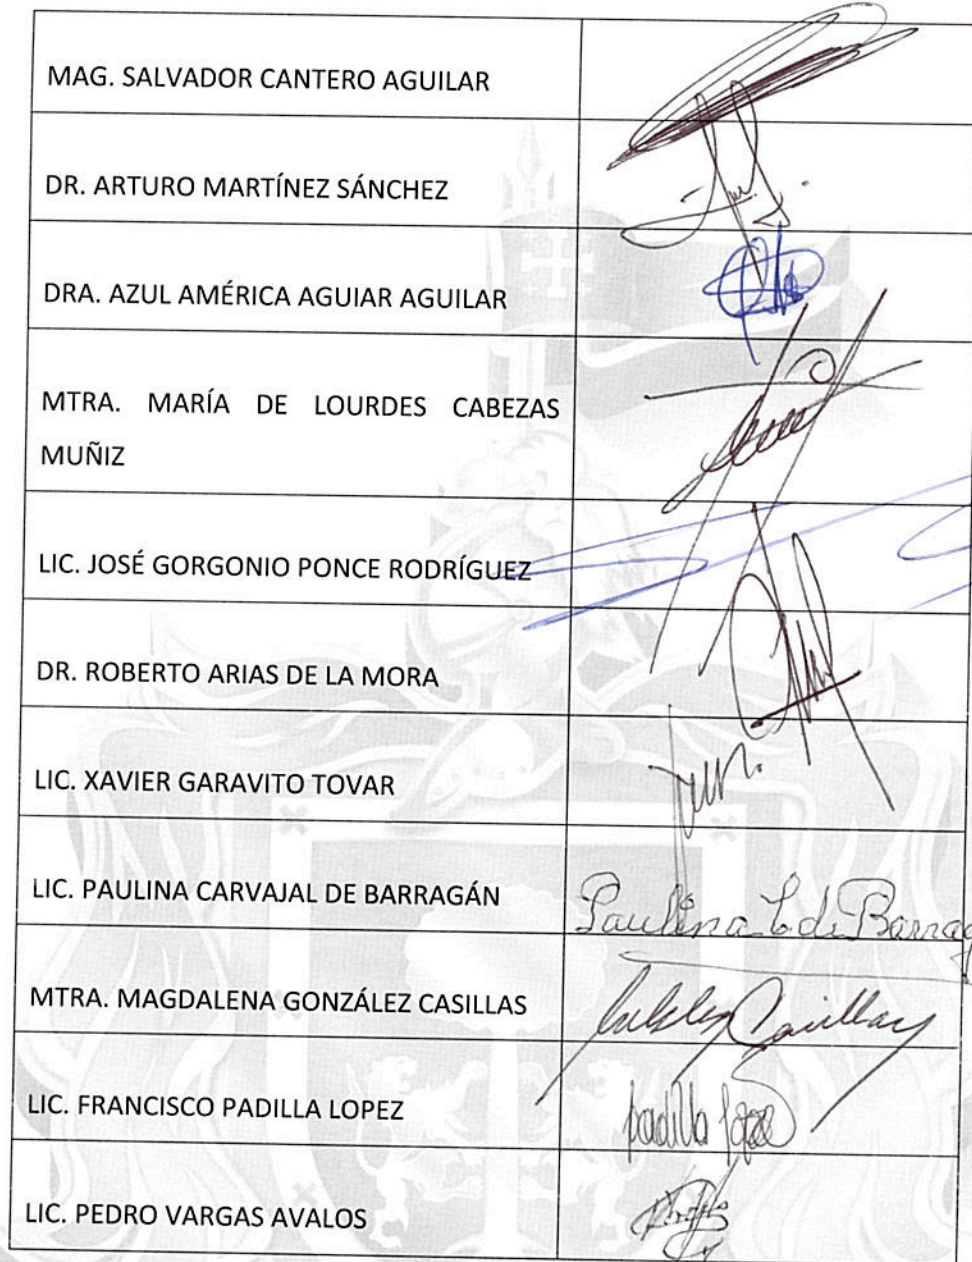 MAG. SALVADOR CANTERO AGUILAR
DR. ARTURO MARTÍNEZ SÁNCHEZ
DRA. AZUL AMÉRICA AGUIAR AGUILAR
MTRA. MARÍA DE LOURDES CABEZAS
MUÑIZ
LIC. JOSÉ GORGONIO PONCE RODRÍGUEZ
DR. ROBERTO ARIAS DE LA MORA
LIC. XAVIER GARAVITO TOVAR
LIC. PAULINA CARVAJAL DE BARRAGÁN
Paulina de Barrag
MTRA. MAGDALENA GONZÁLEZ CASILLAS
Casillas
LIC. FRANCISCO PADILLA LOPEZ
padilla lopez
LIC. PEDRO VARGAS AVALOS